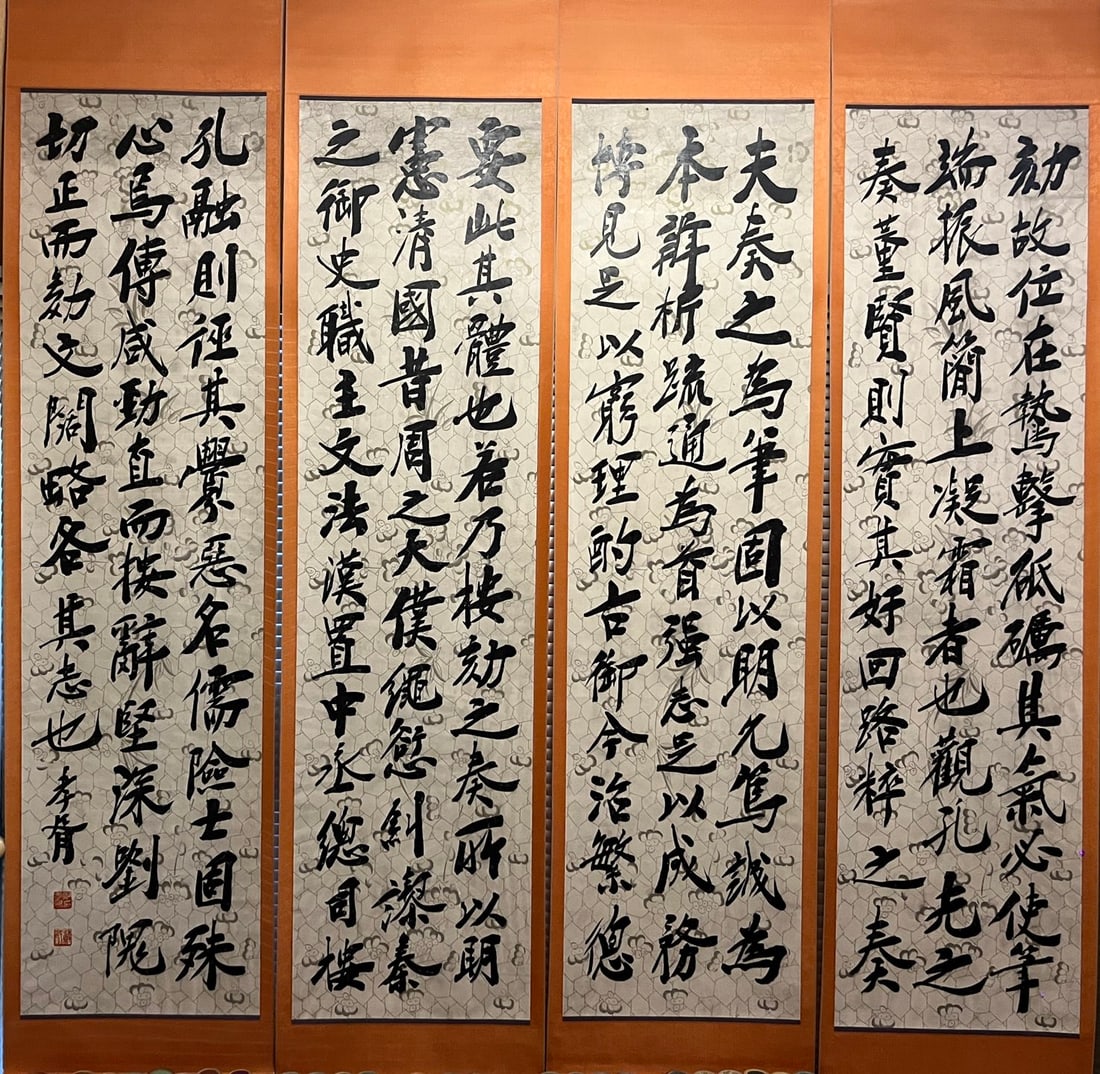 劾故位在鷙擊砥礪其氣必使筆
端振風簡上凝霜者也觀孔光之
奏董賢則實其奸回路粹之奏
夫奏之為筆固以明允篤誠為
本辨析疏通為首强志足以成務
博見足以窮理酌古御今治繁總
要此其體也若乃按劾之奏所以明
憲清國昔周之太僕繩愆糾謬秦
之御史職主文法漢置中丞總司按
孔融則誣其釁惡名儒險士固殊
心焉傅咸勁直而按辭堅深劉隗
切正而劾文闊略各其志也 孝胥